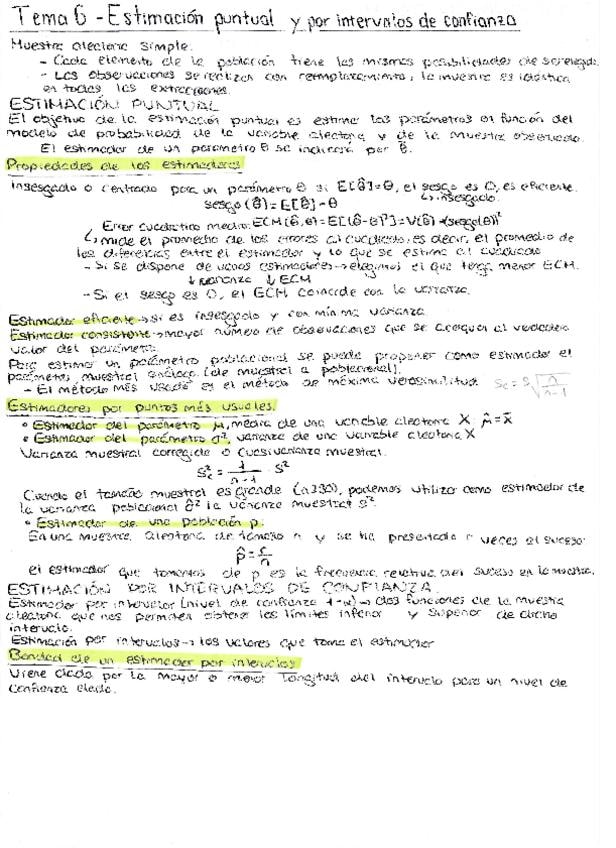 Tema 6 - Estimación puntual y por intervalos de confianza
Muestra aleatoria simple.
- Cada elemento de la población tiene las mismas posibilidades de ser elegido.
- Las observaciones se realizan con reemplazamiento, la muestra es idéntica
en todas las extracciones.
ESTIMACIÓN PUNTUAL
El objetivo de la estimación puntual es estimar los parámetros en función del
modelo de probabilidad de la variable aleatoria y de la muestra observada.
El estimador de un parámetro θ se indicará por θ̂.
Propiedades de los estimadores
Insesgado o centrado para un parámetro θ si E[θ̂]=θ, el sesgo es 0, es eficiente.
sesgo(θ̂)=E[θ̂]-θ ↳ insesgado.
Error cuadrático medio: ECM(θ̂,θ)=E[(θ̂-θ)²]=V(θ̂)+(sesgo(θ̂))²
↳ mide el promedio de los errores al cuadrado, es decir, el promedio de
las diferencias entre el estimador y lo que se estima al cuadrado
- Si se dispone de varios estimadores → elegimos el que tenga menor ECM.
↓ varianza ↓ ECM
- Si el sesgo es 0, el ECM coincide con la varianza.
Estimador eficiente → si es insesgado y con mínima varianza
Estimador consistente → mayor número de observaciones que se acerquen al verdadero
valor del parámetro.
Para estimar un parámetro poblacional se puede proponer como estimador el
parámetro muestral análogo (de muestral a poblacional).
- El método más usado es el método de máxima verosimilitud. Sc = S√(n/(n-1))
Estimadores por puntos más usuales.
• Estimador del parámetro μ, media de una variable aleatoria X μ̂=x̄
• Estimador del parámetro σ², varianza de una variable aleatoria X
Varianza muestral corregida o cuasivarianza muestral.
Sc² = n/(n-1) · S²
Cuando el tamaño muestral es grande (n≥30), podemos utilizar como estimador de
la varianza poblacional σ² la varianza muestral S².
• Estimador de una población p.
En una muestra aleatoria de tamaño n y se ha presentado r veces el suceso
p̂ = r/n
el estimador que tomamos de p es la frecuencia relativa del suceso en la muestra.
ESTIMACIÓN POR INTERVALOS DE CONFIANZA
Estimador por intervalos (nivel de confianza 1-α) → dos funciones de la muestra
aleatoria que nos permiten obtener los límites inferior y superior de dicho
intervalo.
Estimación por intervalos → los valores que toma el estimador
Bondad de un estimador por intervalos
Viene dada por la mayor o menor longitud del intervalo para un nivel de
confianza dado.